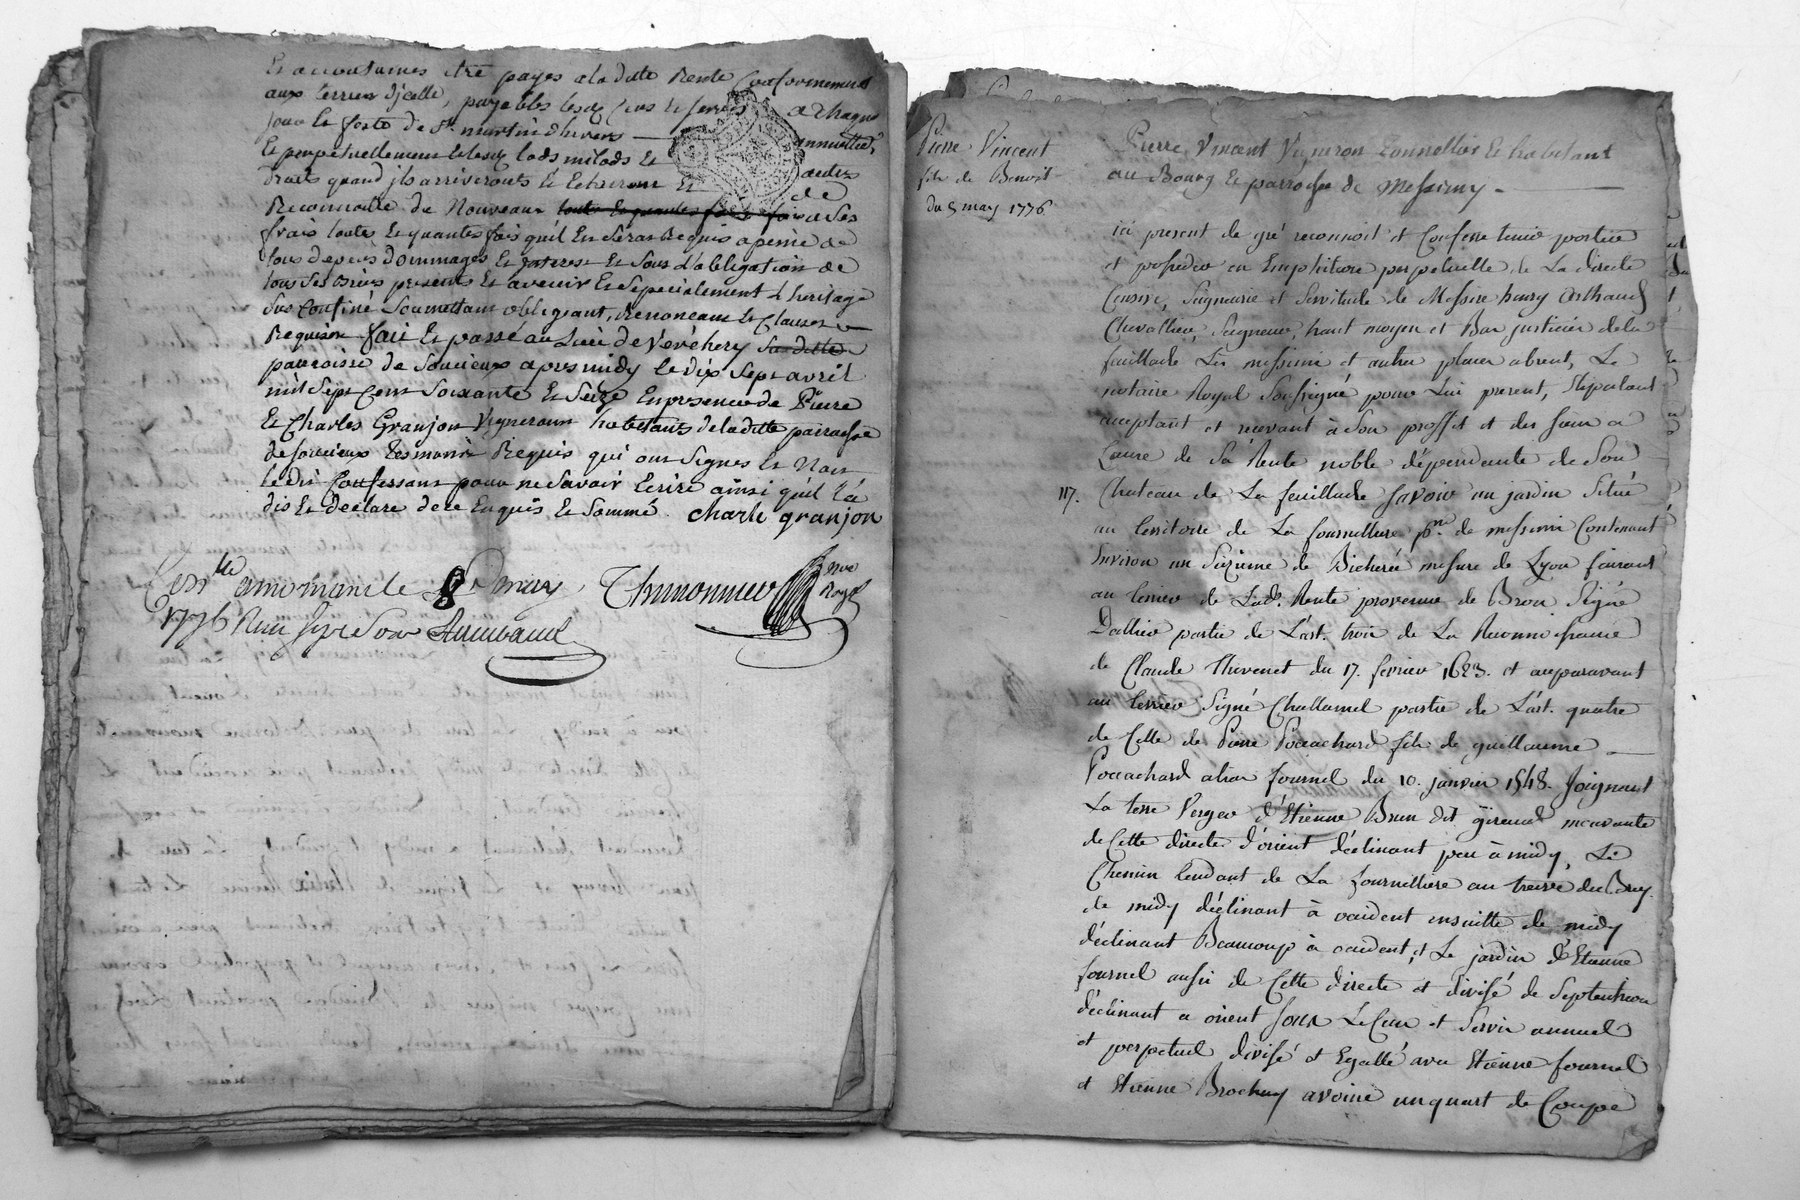 Et accoutumés etre payes a la ditte Rente Conformement
aux terriers djcelle, payables lesd. Cens et servis a Chaque
jour et feste de St. martin d'hivert annuellem.t
Et perpetuellement Et lesd. lods milods Et autres
droits quand jls arriveronts Et Echeront Et de
Reconnoitre de Nouveaux toute Et quantes fois a Ses
frais toutes Et quantes fois quil En Seras Requis a peine de
tous depens dommages Et jnterest Et Sous l'obligation de
tous Ses Biens presents Et avenir Et Specialement L'heritage
Sus Confiné Soumettant obligeant, Renonceant Et Clauses
Requises fait Et passé au Lieu de Verchery Sur ditte
parroisse de Soucieux apres midy le dix Sept avril
mil Sept Cens Soixante Et Seize En presence de Pierre
Et Charles Granjon Vignerons habitants de la ditte parroisse
de Soucieux temoins Requis qui ont Signes Et Non
le dit Confessant pour ne Savoir Ecrire ainsi quil l'a
dis Et declare de ce Enquis Et Sommé. Charle granjon
Con.lle a mornant le 8 may Thimonnier Nre Royal
1776 Reçu
Pierre Vincent
fils de Benoit
du 5 may 1776.
Pierre Vincent Vigneron tonnellier et habitant
au Bourg et parroisse de Messimy -
ici present de gré reconnoit et Confesse tenir porter
et posseder en Emphiteose perpetuelle de La directe
Censive, Seigneurie et Servitude de Messire henry Arthaud
Chevallier, Seigneur, haut moyen et Bas justicier de la
feuillade Les messimi et autres places absent, Le
notaire Royal Soussigné pour Lui present, Stipulant
acceptant et recevant à Son proffit et des siens a
Cause de Sa Rente noble dépendante de Son
117. Chateau de La feuillade Savoir un jardin Situé
au territoire de La fournilliere p.sse de messimi Contenant
Environ un Sizieme de Bicherée mesure de Lyon faisant
au terrier de Lad. Rente provenue de Bron Signé
Dallier partie de L'art. trois de La Reconnoissance
de Claude Thevenet du 17. fevrier 1623. et auparavant
au terrier Signé Challamel partie de L'art. quatre
de Celle de Pierre Poccachard fils de guillaume
Poccachard alias fournel du 10. janvier 1548. Joignant
La terre Verger d'Etienne Brun dit gireud mouvante
de Cette directe d'orient déclinant peu à midy, Le
Chemin tendant de La fournilliere au treive du Buy
de midy déclinant à occident ensuitte de midy
déclinant Beaucoup à occident, et Le jardin d'Etienne
fournel aussi de Cette directe et divisé de Septentrion
déclinant a orient Sous Le Cens et Servis annuel
et perpetuel divisé et Egallé avec Etienne fournel
et Etienne Brochay avoine un quart de Coupe